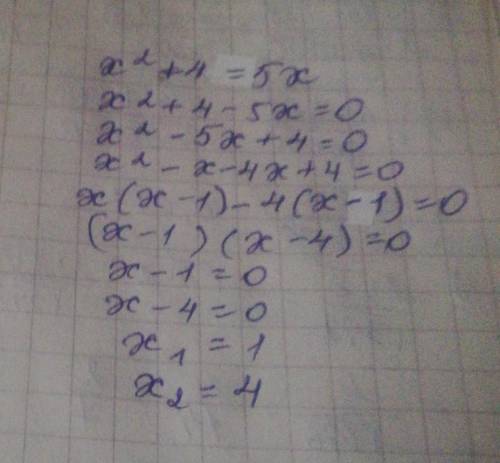 x² + 4 = 5x
x² + 4 - 5x = 0
x² - 5x + 4 = 0
x² - x - 4x + 4 = 0
x (x - 1) - 4 (x - 1) = 0
(x - 1) (x - 4) = 0
x - 1 = 0
x - 4 = 0
x₁ = 1
x₂ = 4